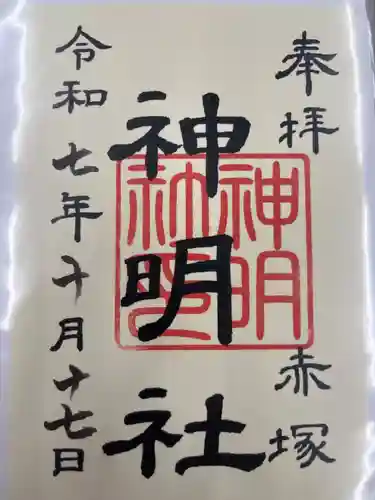 奉拝 赤塚
神明社
神明社印
令和七年十月十七日